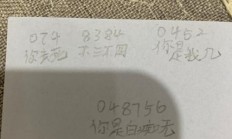 074 8384 0452
你去死 不三不四 你是我儿
048756
你是白痴无